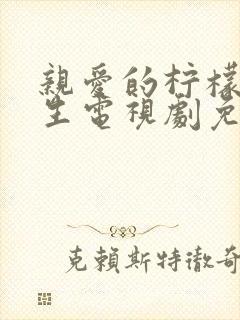 親愛的柠檬
生電視劇免
克賴斯特徹奇